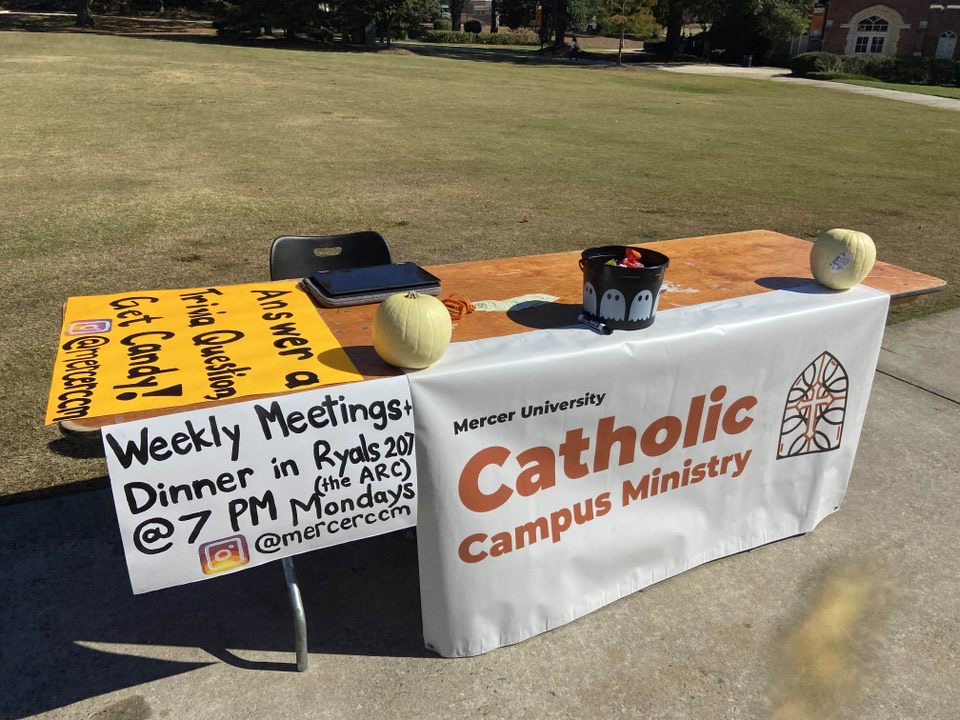 Answer a
Trivia Question,
Get Candy!
@mercerccm
Weekly Meetings+
Dinner in Ryals 207
(the ARC)
@7 PM Mondays
@mercerccm
Mercer University
Catholic
Campus Ministry